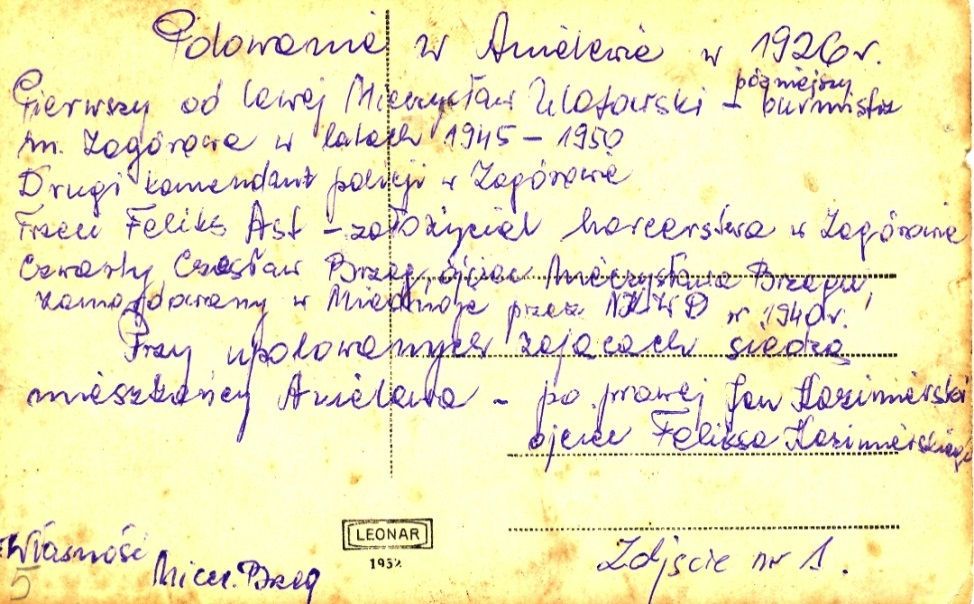 Polowanie w Anielewie w 1926 r.
Pierwszy od lewej Mieczysław Ulatowski – późniejszy burmistrz
m. Zagórowa w latach 1945 – 1950
Drugi komendant policji w Zagórowie
Trzeci Feliks Ast – założyciel harcerstwa w Zagórowie
Czwarty Czesław Brzęg, ojciec Mieczysława Brzęga,
zamordowany w Miednoje przez NKWD w 1940 r.
Przy upolowanych zającach siedzą
mieszkańcy Anielewa – po prawej Jan Kazimierski
ojciec Feliksa Kazimierskiego
LEONAR
1932
Własność
Miecz. Brzęg
5
Zdjęcie nr 1.